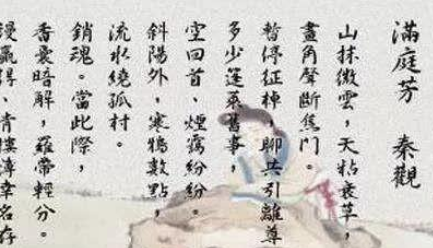 滿庭芳 秦觀
山抹微雲，天粘衰草，
畫角聲斷焦門。
暫停征棹，聊共引離尊
多少蓬萊舊事，
空回首、煙靄紛紛。
斜陽外，寒鴉數點，
流水繞孤村。
銷魂。當此際，
香囊暗解，羅帶輕分。
贏得、青樓薄幸名存